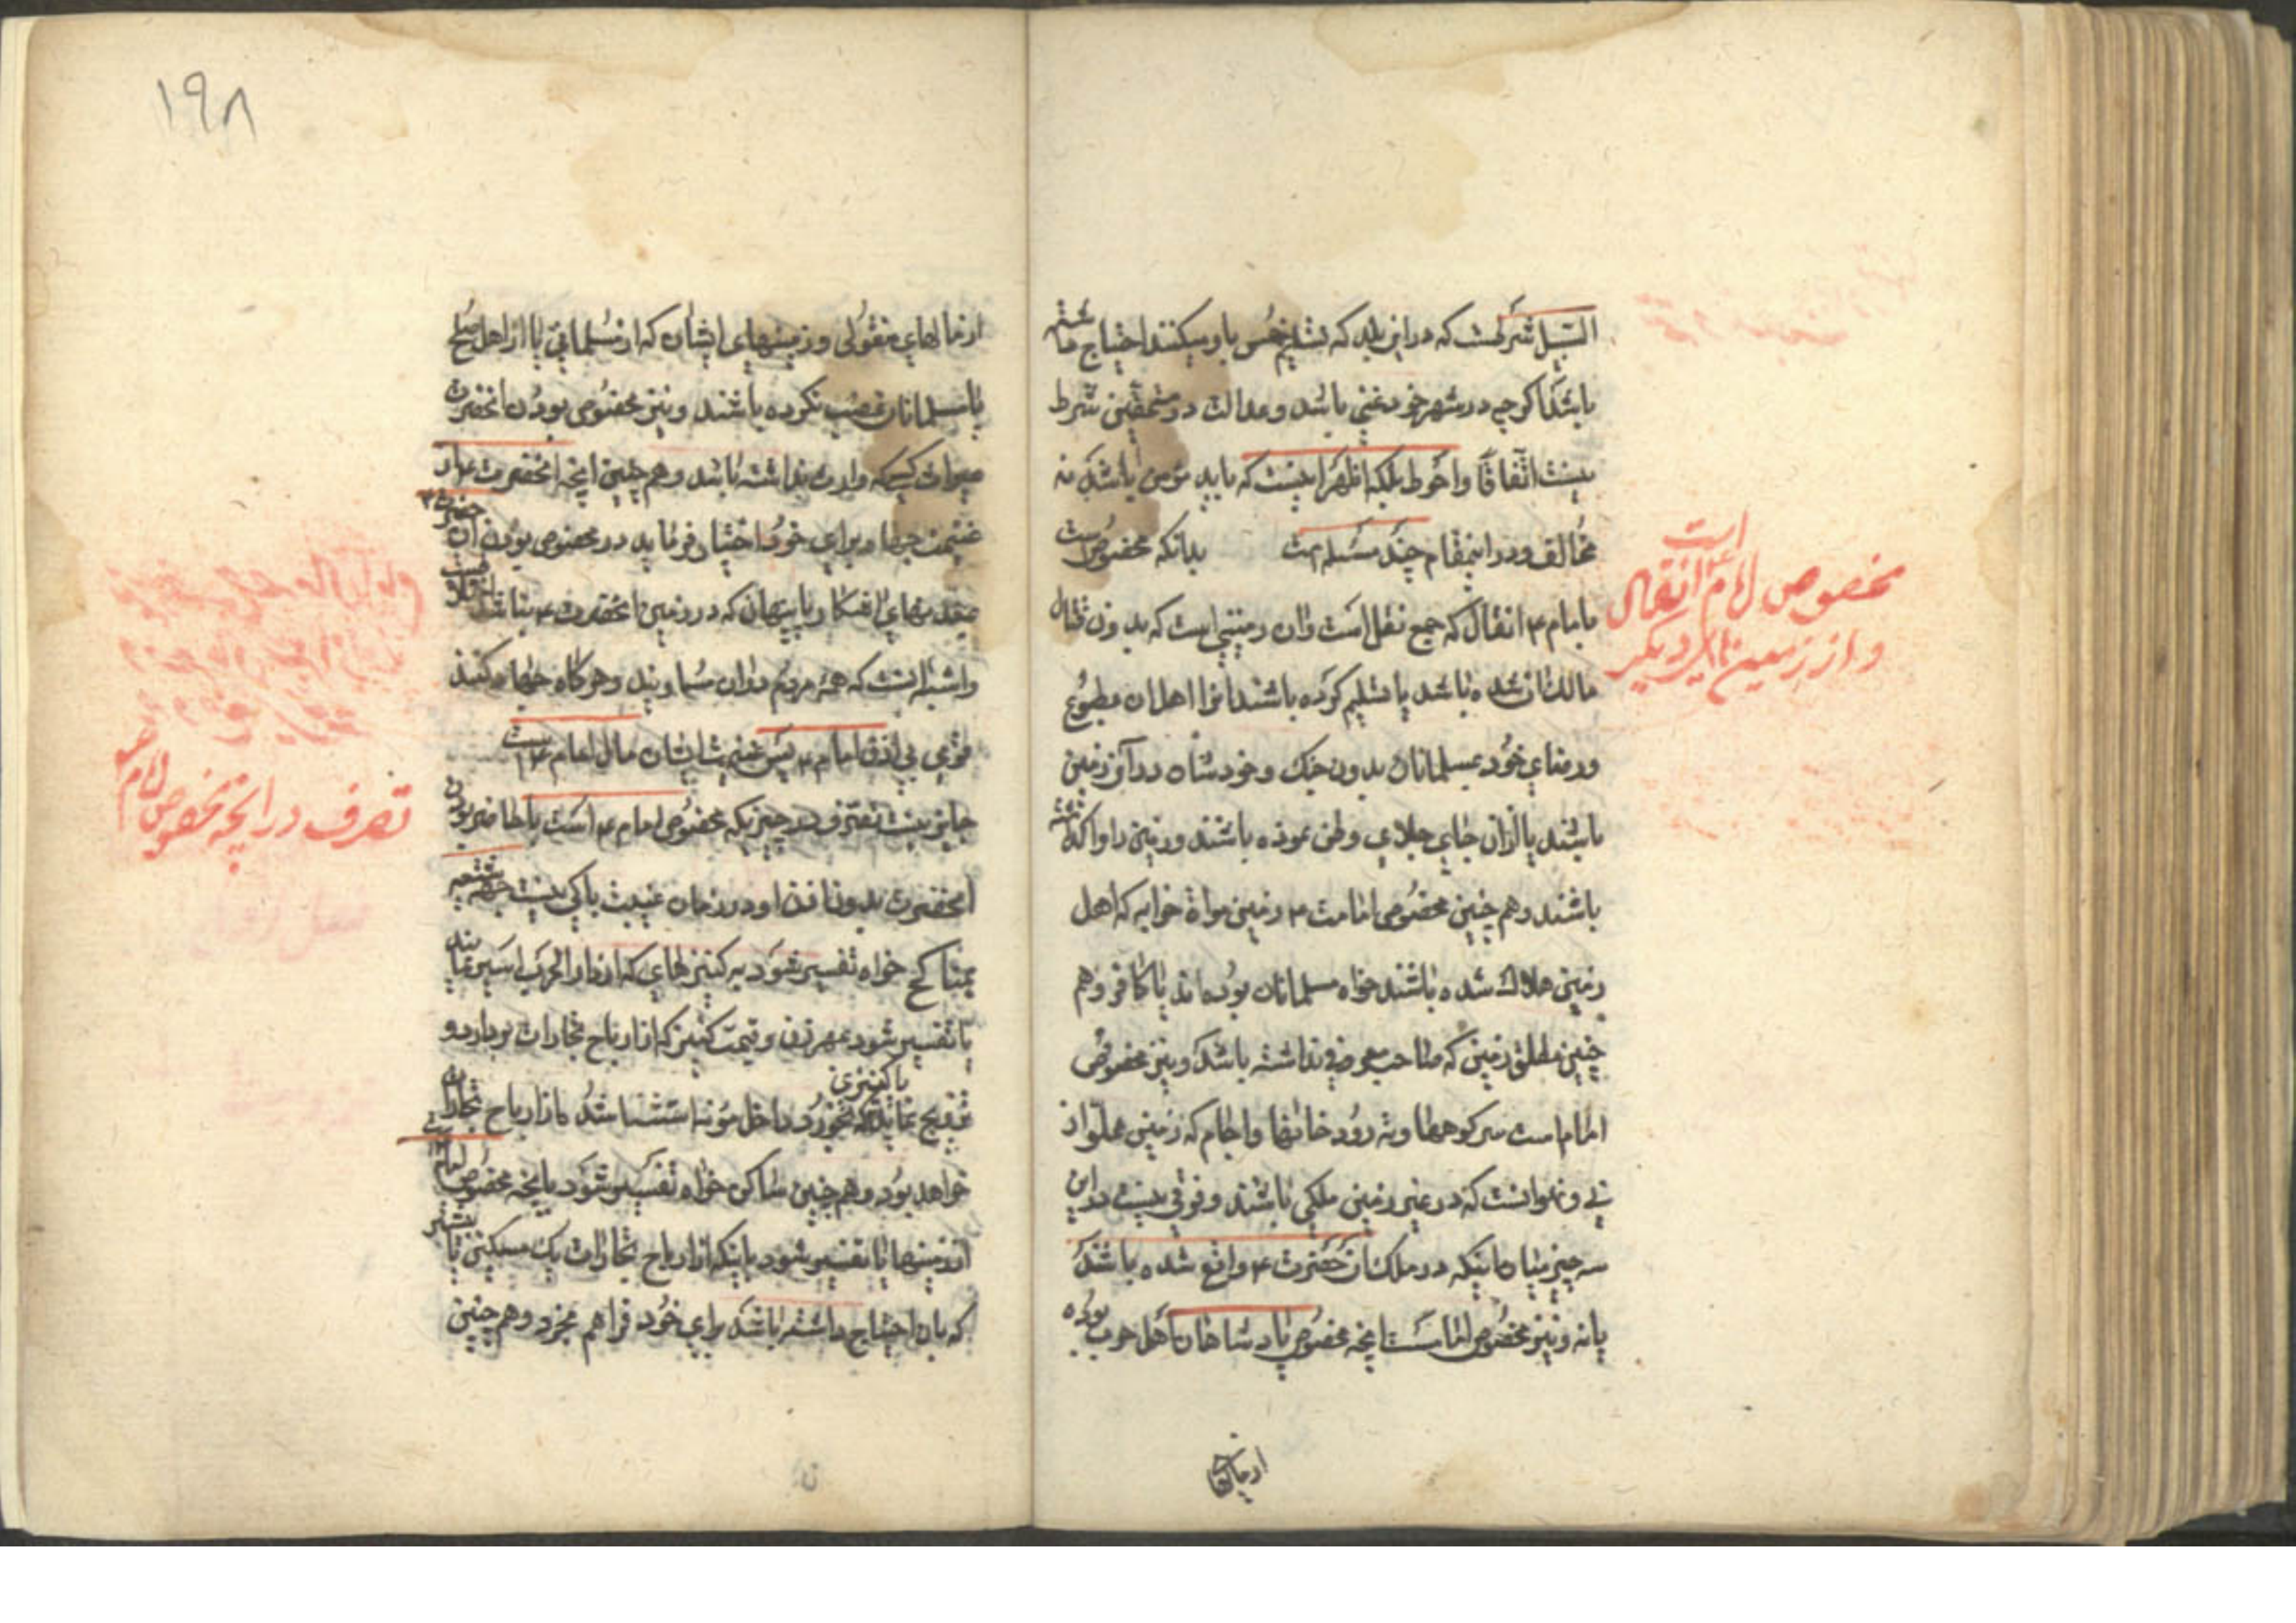 السبیل شرطست که در این بلد که تسلیم خمس باو میکنند احتیاج داشته
باشد اگر چه در شهر خود غنی باشد و عدالت در مستحقین شرط
نیست اتفاقا و احوط بلکه اظهر اینست که باید مؤمن باشد نه
مخالف و در اینمقام چند مسئله است بدانکه مخصوص است
بامام ع انفال که جمع نفل است و ان زمینی است که بدون قتال
مالک ان شده باشد یا تسلیم کرده باشند انرا اهل ان بطوع
و رضای خود بمسلمانان بدون جنک و خودشان در آن زمین
باشند یا از ان جای جلای وطن نموده باشند و زمین را واگذاشته
باشند و هم چنین مخصوص امامت ع زمین موات خرابه که اهل
زمین هلاک شده باشند خواه مسلمانان بوده اند یا کافر و هم
چنین مطلق زمین که صاحب معروفی نداشته باشد و نیز مخصوص
امام است سر کوهها و ته رودخانها و اجام که زمین مملو از
نی و نحوانست که در غیر زمین ملکی باشند و فرقی نیست در این
سه چیز میان اینکه در ملک ان حضرت ع واقع شده باشد
یا نه و نیز مخصوص امامست انچه مخصوص پادشاهان اهل حرب بوده
از مالهای
است
مخصوص امام ع انفال
و از زمین
دیگر
١٩٨
از مالهای منقولی و زمینهای ایشان که از مسلمانی یا از اهل صلح
با مسلمانان غصب نکرده باشند و نیز مخصوص بودن انحضرت
میراث کسی که وارث نداشته باشد و هم چنین انچه انحضرت ع از
غنیمت جدا و برای خود اختیار فرماید در مخصوص بودن ان حضرت ع
معدنهای اشکار و پنهان که در زمین انحضرت ع نباشد
و اشبه انست که همه مردم در ان مساویند و هر گاه جهاد کنند
قومی بی اذن امام ع پس غنیمت ایشان مال امام ع است
جایز نیست تصرف در چیزیکه مخصوص امام ع است با حاضر بودن
انحضرت بدون اذن او و در زمان غیبت باکی نیست
بمناکح خواه تفسیر شود به کنیزهای که از دار الحرب اسیر
یا تفسیر شود بمهر زن و قیمت کنیز که از ارباح تجارات
تزویج نماید یا کنیزی که بخرد داخل مؤنه استثنا شد از ارباح تجارات
خواهد بود و هم چنین مساکن خواه تفسیر شود بانچه مخصوص امام
از زمینها یا تفسیر شود باینکه از ارباح تجارات یک مسکنی یا بیشتر
که بان احتیاج داشته باشد برای خود فراهم بخرد و هم چنین
تصرف در انچه مخصوص امام